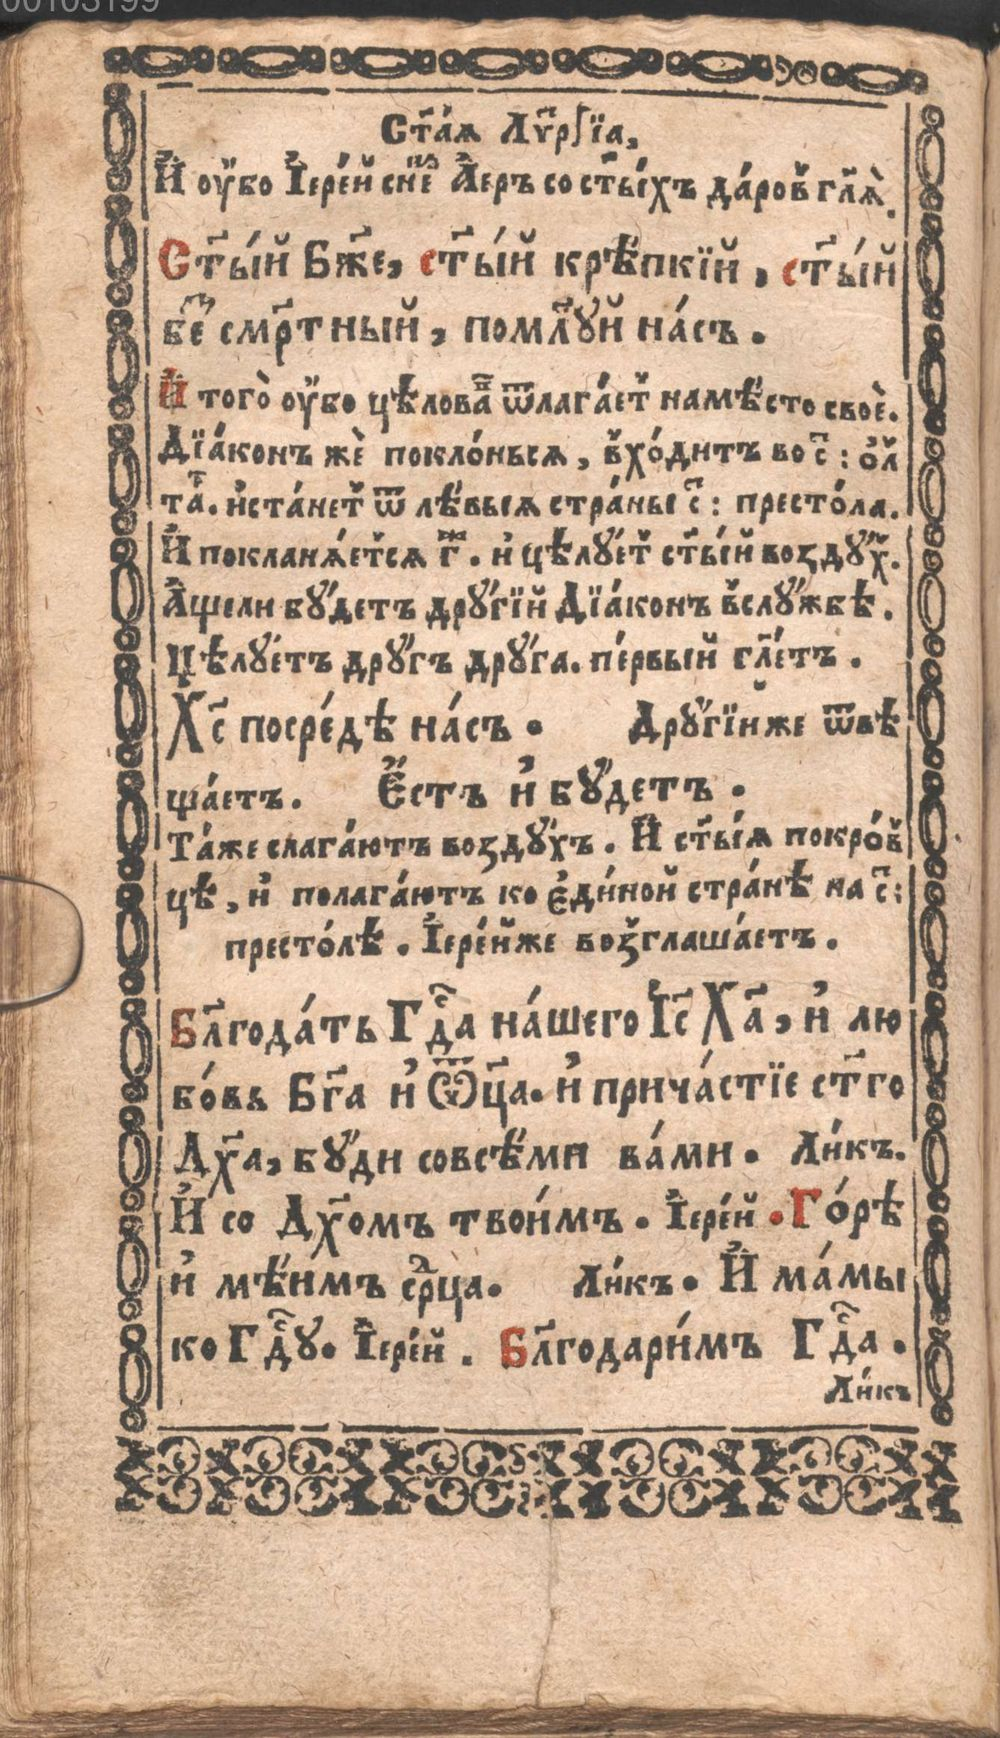 00103199
Ст҃а́ѧ Лѵ҃рⷢ҇їа,
И҆ оу҆́бо І҆ере́й сни́меⷮ А҆е́ръ со ст҃ы́хъ да́ровъ гл҃ѧ̀.
Ст҃ы́й Бж҃е, ст҃ы́й крѣ́пкїй, ст҃ы́й
беⷥсмр҃тный, поми́лꙋй на́съ.
И҆ того̀ оу҆́бо цѣлова́въ ѿлага́етъ на мѣ́сто своѐ.
Дїа́конъ жѐ покло́нься, вхо́дитъ во с҃: о҆л
та́рь. и҆ ста́нетъ ѿ лѣ́выѧ страны̀ с҃: престо́ла.
И҆ покланѧ́етсѧ г҃ⷤ. и҆ цѣлꙋ́етъ ст҃ы́й воздꙋ́хъ.
А҆ще ли бꙋ́детъ дрꙋгі́й Дїа́конъ в слꙋ́жбѣ.
Цѣлꙋ́етъ дрꙋ́гъ дрꙋ́га. пе́рвый гл҃етъ.
Хс҃ посре́дѣ на́съ. Дрꙋгі́йже ѿвѣ
ща́етъ. Е҆́сть и҆ бꙋ́детъ.
Та́же слага́ютъ воздꙋ́хъ. И҆ ст҃ы́ѧ покро́в
цѣ, и҆ полага́ютъ ко є҆ди́ной стра́нѣ на с҃:
престо́лѣ. І҆ере́йже возглаша́етъ.
Бл҃года́ть Гдⷭ҇а на́шего І҆с҃ Ха҃, и҆ лю
бо́вь Бг҃а и҆ Ѻц҃а. и҆ прича́стїе ст҃го
Дх҃а, бꙋ́ди со всѣ́ми ва́ми. Ли́къ.
И҆ со Дх҃омъ твои́мъ. І҆ере́й. Го́рѣ
и҆мѣ́имъ срⷣца. Ли́къ. И҆́мамы
ко Гдⷭ҇ꙋ. І҆ере́й. Бл҃годари́мъ Гдⷭ҇а.
Ли́къ